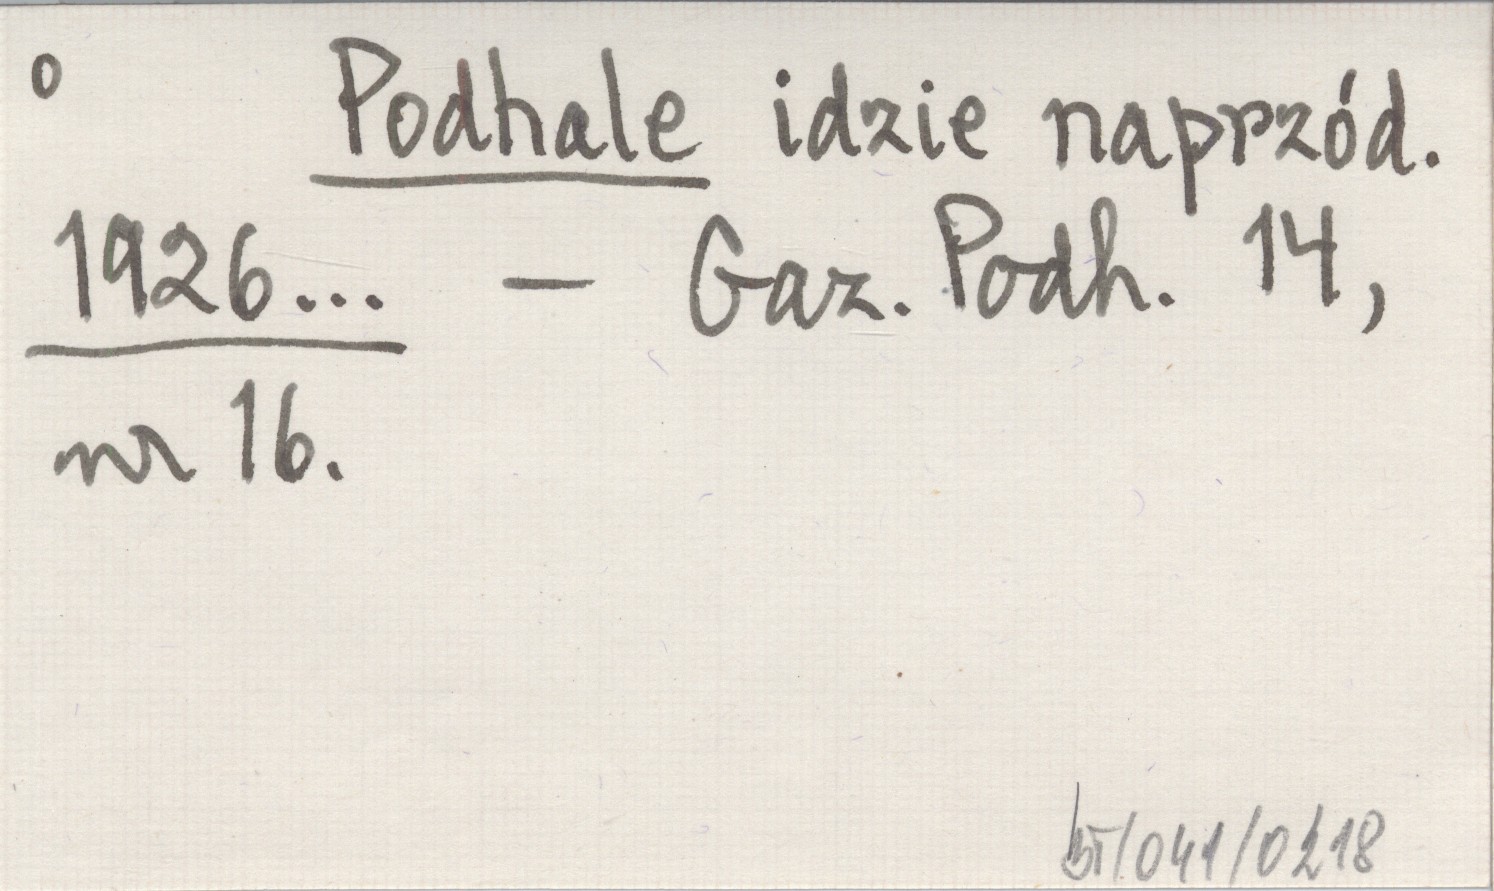 o Podhale idzie naprzód.
1926... - Gaz. Podh. 14,
nr 16.
/041/0218